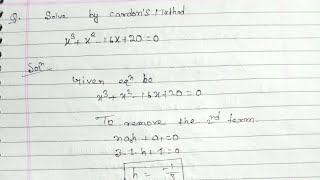 Q. Solve by Cardon's Method
x³ + x² - 16x + 20 = 0
Solⁿ
Given eqⁿ be
x³ + x² - 16x + 20 = 0
To remove the 2nd term
na₀h + a₁ = 0
3·1·h + 1 = 0
h = -1/3